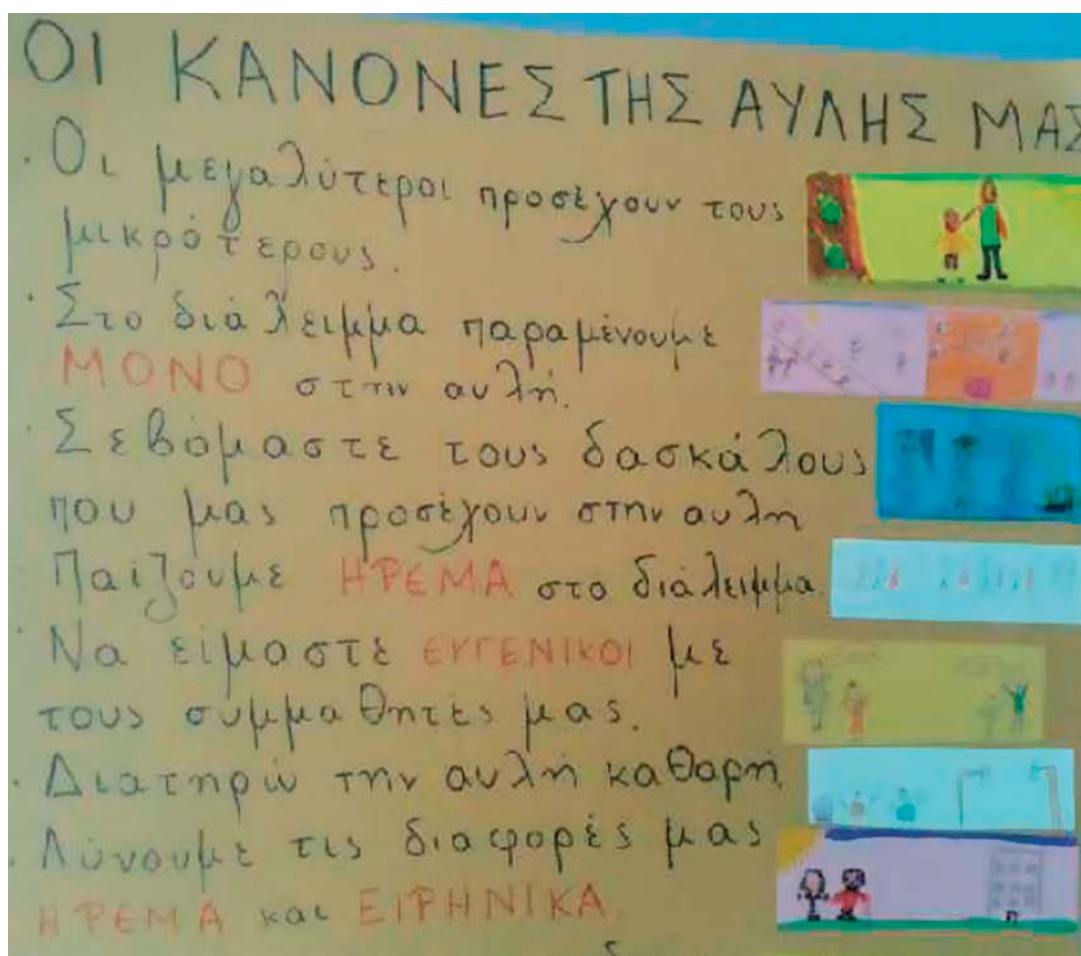 ΟΙ ΚΑΝΟΝΕΣ ΤΗΣ ΑΥΛΗΣ ΜΑΣ
· Οι μεγαλύτεροι προσέχουν τους
μικρότερους.
· Στο διάλειμμα παραμένουμε
ΜΟΝΟ στην αυλή.
· Σεβόμαστε τους δασκάλους
που μας προσέχουν στην αυλη
Παίζουμε ΗΡΕΜΑ στο διάλειμμα.
· Να είμαστε ΕΥΓΕΝΙΚΟΙ με
τους συμμαθητές μας.
· Διατηρώ την αυλή καθαρή.
· Λύνουμε τις διαφορές μας
ΗΡΕΜΑ και ΕΙΡΗΝΙΚΑ.